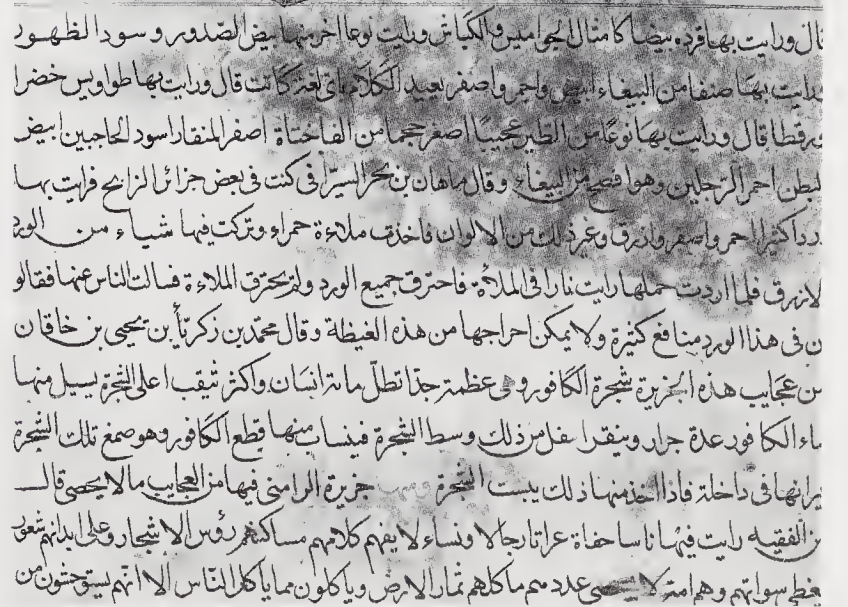 قال ورايت بها قرده بيضا كامثال الجواميس والكباش ورايت نوعا اخر منها بيض الصدور وسود الظهور
ورايت بها صنفا من الببغاء ابيض واحمر واصفر يعيد الكلام باى لغة كانت قال ورايت بها طواويس خضرا
ورقطا قال ورايت بها نوعا من الطير عجيبا اصغر حجما من الفاختاة اصفر المنقار اسود الحاجبين ابيض
البطن احمر الرجلين وهو افصح من الببغاء وقال ماهان بن بحر السيرافى كنت فى بعض جزائر الزابج فرايت بها
وردا كثيرا احمر واصفر وازرق وغير ذلك من الالوان فاخذت ملاءة حمراء وتركت فيها شياء من الورد
الازرق فلما اردت حملها رايت نارا فى الملأة فاحترق جميع الورد ولم يحترق الملاءة فسالت الناس عنها فقالو
ان فى هذا الورد منافع كثيرة ولا يمكن احراجها من هذه الغيظة وقال محمد بن زكريا بن يحيى بن خاقان
من عجايب هذه الجزيرة شجرة الكافور وهى عظمة جدا تظل ماىة انسان واكثر ثيقب اعلى الشجرة يسيل منها
ماء الكافور عدة جرار وينقر اسفل من ذلك وسط الشجرة فينساب منها قطع الكافور وهو صمغ تلك الشجرة
غير انها فى داخلة فاذا اخذ منها ذلك يبست الشجرة ومنها جزيرة الرامنى فيها من العجايب ما لا يحصى قال
بن الفقيه رايت فيها ناسا حفاة عراتا رجالا ونساء لا يفهم كلامهم مساكنهم رؤس الاشجار وعلى ابدانهم شعور
يغطى سواتهم وهم امة لا يحصى عددهم ماكلهم ثمار الارض وياكلون مما ياكل الناس الا انهم يستوحشون من